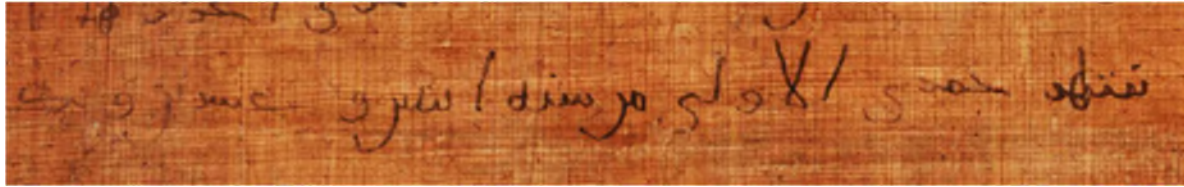 شهر جمدى الاولى من سنه اثنين وعشرين وكتب